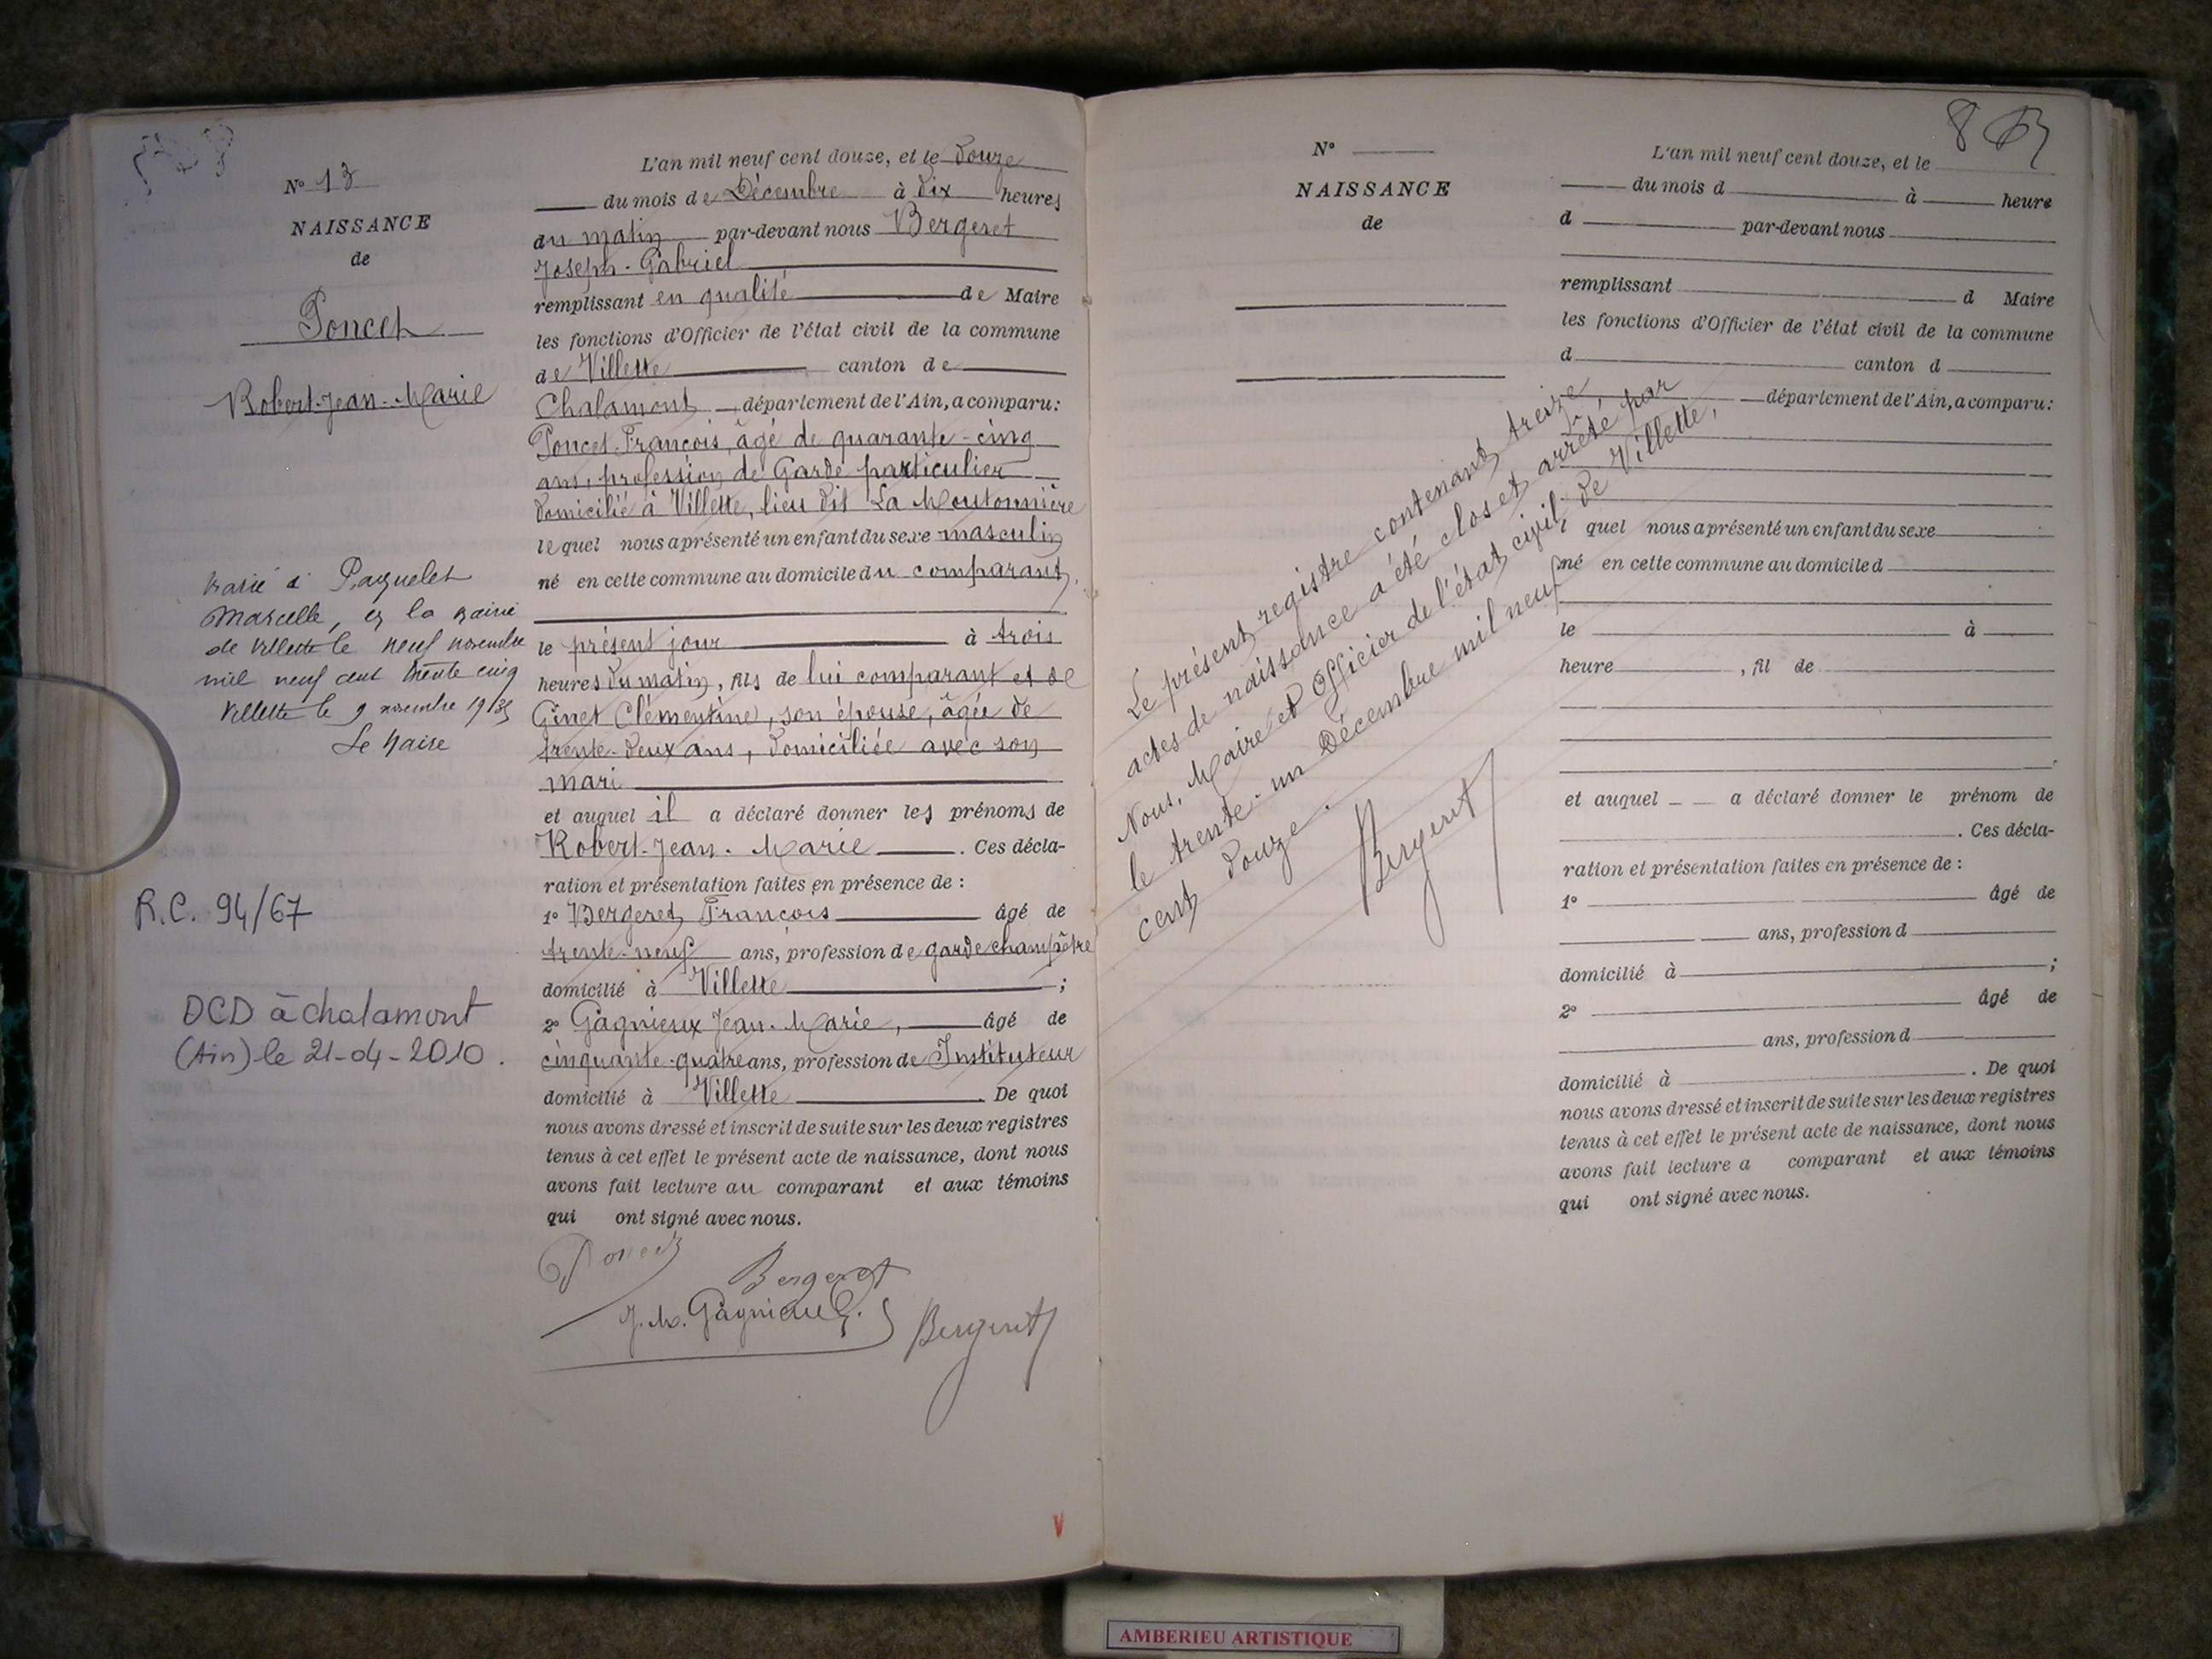 N° 13
NAISSANCE
de
Poncet
Robert-Jean-Marie
Marié à Paquelet
Marcelle, en la mairie
de Villette le neuf novembre
mil neuf cent trente cinq
Villette le 9 novembre 1935
Le Maire
R.C. 94/67
DCD à chalamont
(Ain) le 21-04-2010.
L'an mil neuf cent douze, et le douze
du mois de Décembre à dix heures
du matin par-devant nous Bergeret
Joseph-Gabriel
remplissant en qualité de Maire
les fonctions d'Officier de l'état civil de la commune
de Villette canton de
Chalamont, département de l'Ain, a comparu:
Poncet François, âgé de quarante-cinq
ans, profession de Garde particulier
domicilié à Villette, lieu dit La Moutonnière
lequel nous a présenté un enfant du sexe masculin
né en cette commune au domicile du comparant,
le présent jour à trois
heures du matin, fils de lui comparant et de
Ginet Clémentine, son épouse, âgée de
trente-deux ans, domiciliée avec son
mari
et auquel il a déclaré donner les prénoms de
Robert-Jean-Marie. Ces décla-
ration et présentation faites en présence de :
1° Bergeret François âgé de
trente-neuf ans, profession de garde champêtre
domicilié à Villette ;
2° Gagnieux Jean-Marie, âgé de
cinquante-quatre ans, profession de Instituteur
domicilié à Villette. De quoi
nous avons dressé et inscrit de suite sur les deux registres
tenus à cet effet le présent acte de naissance, dont nous
avons fait lecture au comparant et aux témoins
qui ont signé avec nous.
Poncet
Bergeret
J.M. Gagnieux
Bergeret
V
8
N°
NAISSANCE
de
Le présent registre contenant treize
actes de naissance a été clos et arrêté par
Nous, Maire et Officier de l'état civil de Villette,
le trente-un Décembre mil neuf
cent douze.
Bergeret
L'an mil neuf cent douze, et le
du mois d à heure
d par-devant nous
remplissant d Maire
les fonctions d'Officier de l'état civil de la commune
d canton d
département de l'Ain, a comparu:
l quel nous a présenté un enfant du sexe
né en cette commune au domicile d
le à
heure , fil de
et auquel a déclaré donner le prénom de
. Ces décla-
ration et présentation faites en présence de :
1° âgé de
ans, profession d
domicilié à ;
2° âgé de
ans, profession d
domicilié à . De quoi
nous avons dressé et inscrit de suite sur les deux registres
tenus à cet effet le présent acte de naissance, dont nous
avons fait lecture a comparant et aux témoins
qui ont signé avec nous.
AMBERIEU ARTISTIQUE